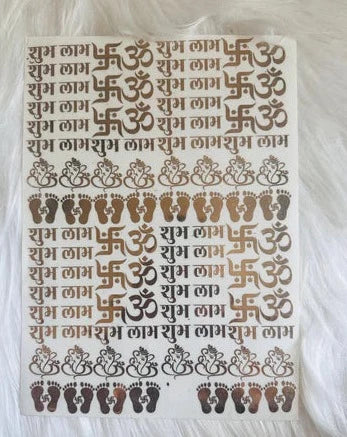 शुभ लाभ 卐 ॐ शुभ लाभ 卐 ॐ
शुभ लाभ शुभ लाभ
शुभ लाभ 卐 ॐ शुभ लाभ 卐 ॐ
शुभ लाभ शुभ लाभ
शुभ लाभ 卐 ॐ शुभ लाभ 卐 ॐ
शुभ लाभ शुभ लाभ शुभ लाभ शुभ लाभ
शुभ लाभ 卐 ॐ शुभ लाभ 卐 ॐ
शुभ लाभ शुभ लाभ
शुभ लाभ 卐 ॐ शुभ लाभ 卐 ॐ
शुभ लाभ शुभ
शुभ लाभ 卐 ॐ शुभ लाभ 卐 ॐ
शुभ लाभ शुभ लाभ शुभ लाभ शुभ लाभ